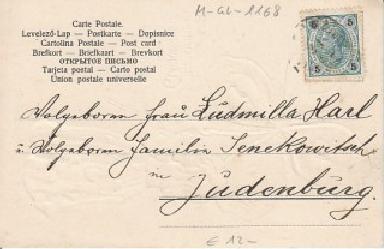 M-GL-1168
Carte Postale.
Levelező-Lap — Postkarte — Dopisnice
Cartolina Postale — Post card
Brefkort — Briefkaart — Brevkort
ОТКРЫТОЕ ПИСЬМО
Tarjeta postal — Carto postal
Union postale universelle
5 5
5 5
Wolgeboren Frau Ludmilla Harl
u Wolgeboren Familin Senekowitsch
in
Judenburg.
€ 12-